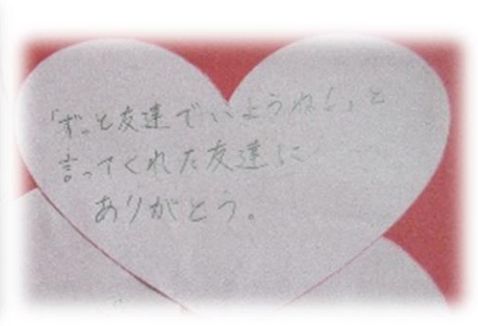 「ずっと友達でいようね！」と
言ってくれた友達に
ありがとう。